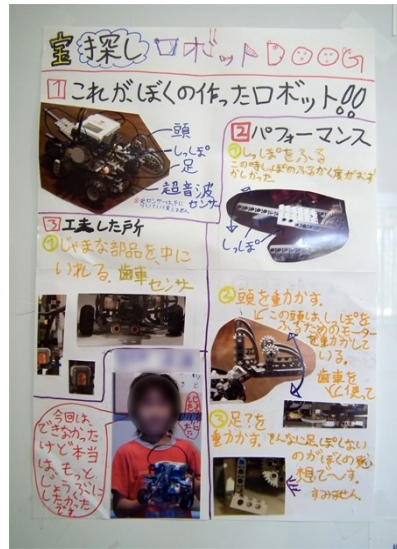 宝探しロボットDOOG
1 これが、ぼくの作ったロボット!!
頭
しっぽ
足
超音波
センサー
2 パフォーマンス
① しっぽをふる
しっぽ
3 工夫した所
① じゃまな部品を、中に
いれる。歯車
センサー
② 頭を動かす。
この頭は、しっぽを
ふるためのモーター
を動かして
いる。
歯車を
使って
③ 足?を
動かす。そんなに足っぽくない
のがぼくの感
想で〜す。
すみません
今回は、
できなかった
けど本当
は、もっと
じょうぶに
したかった
です